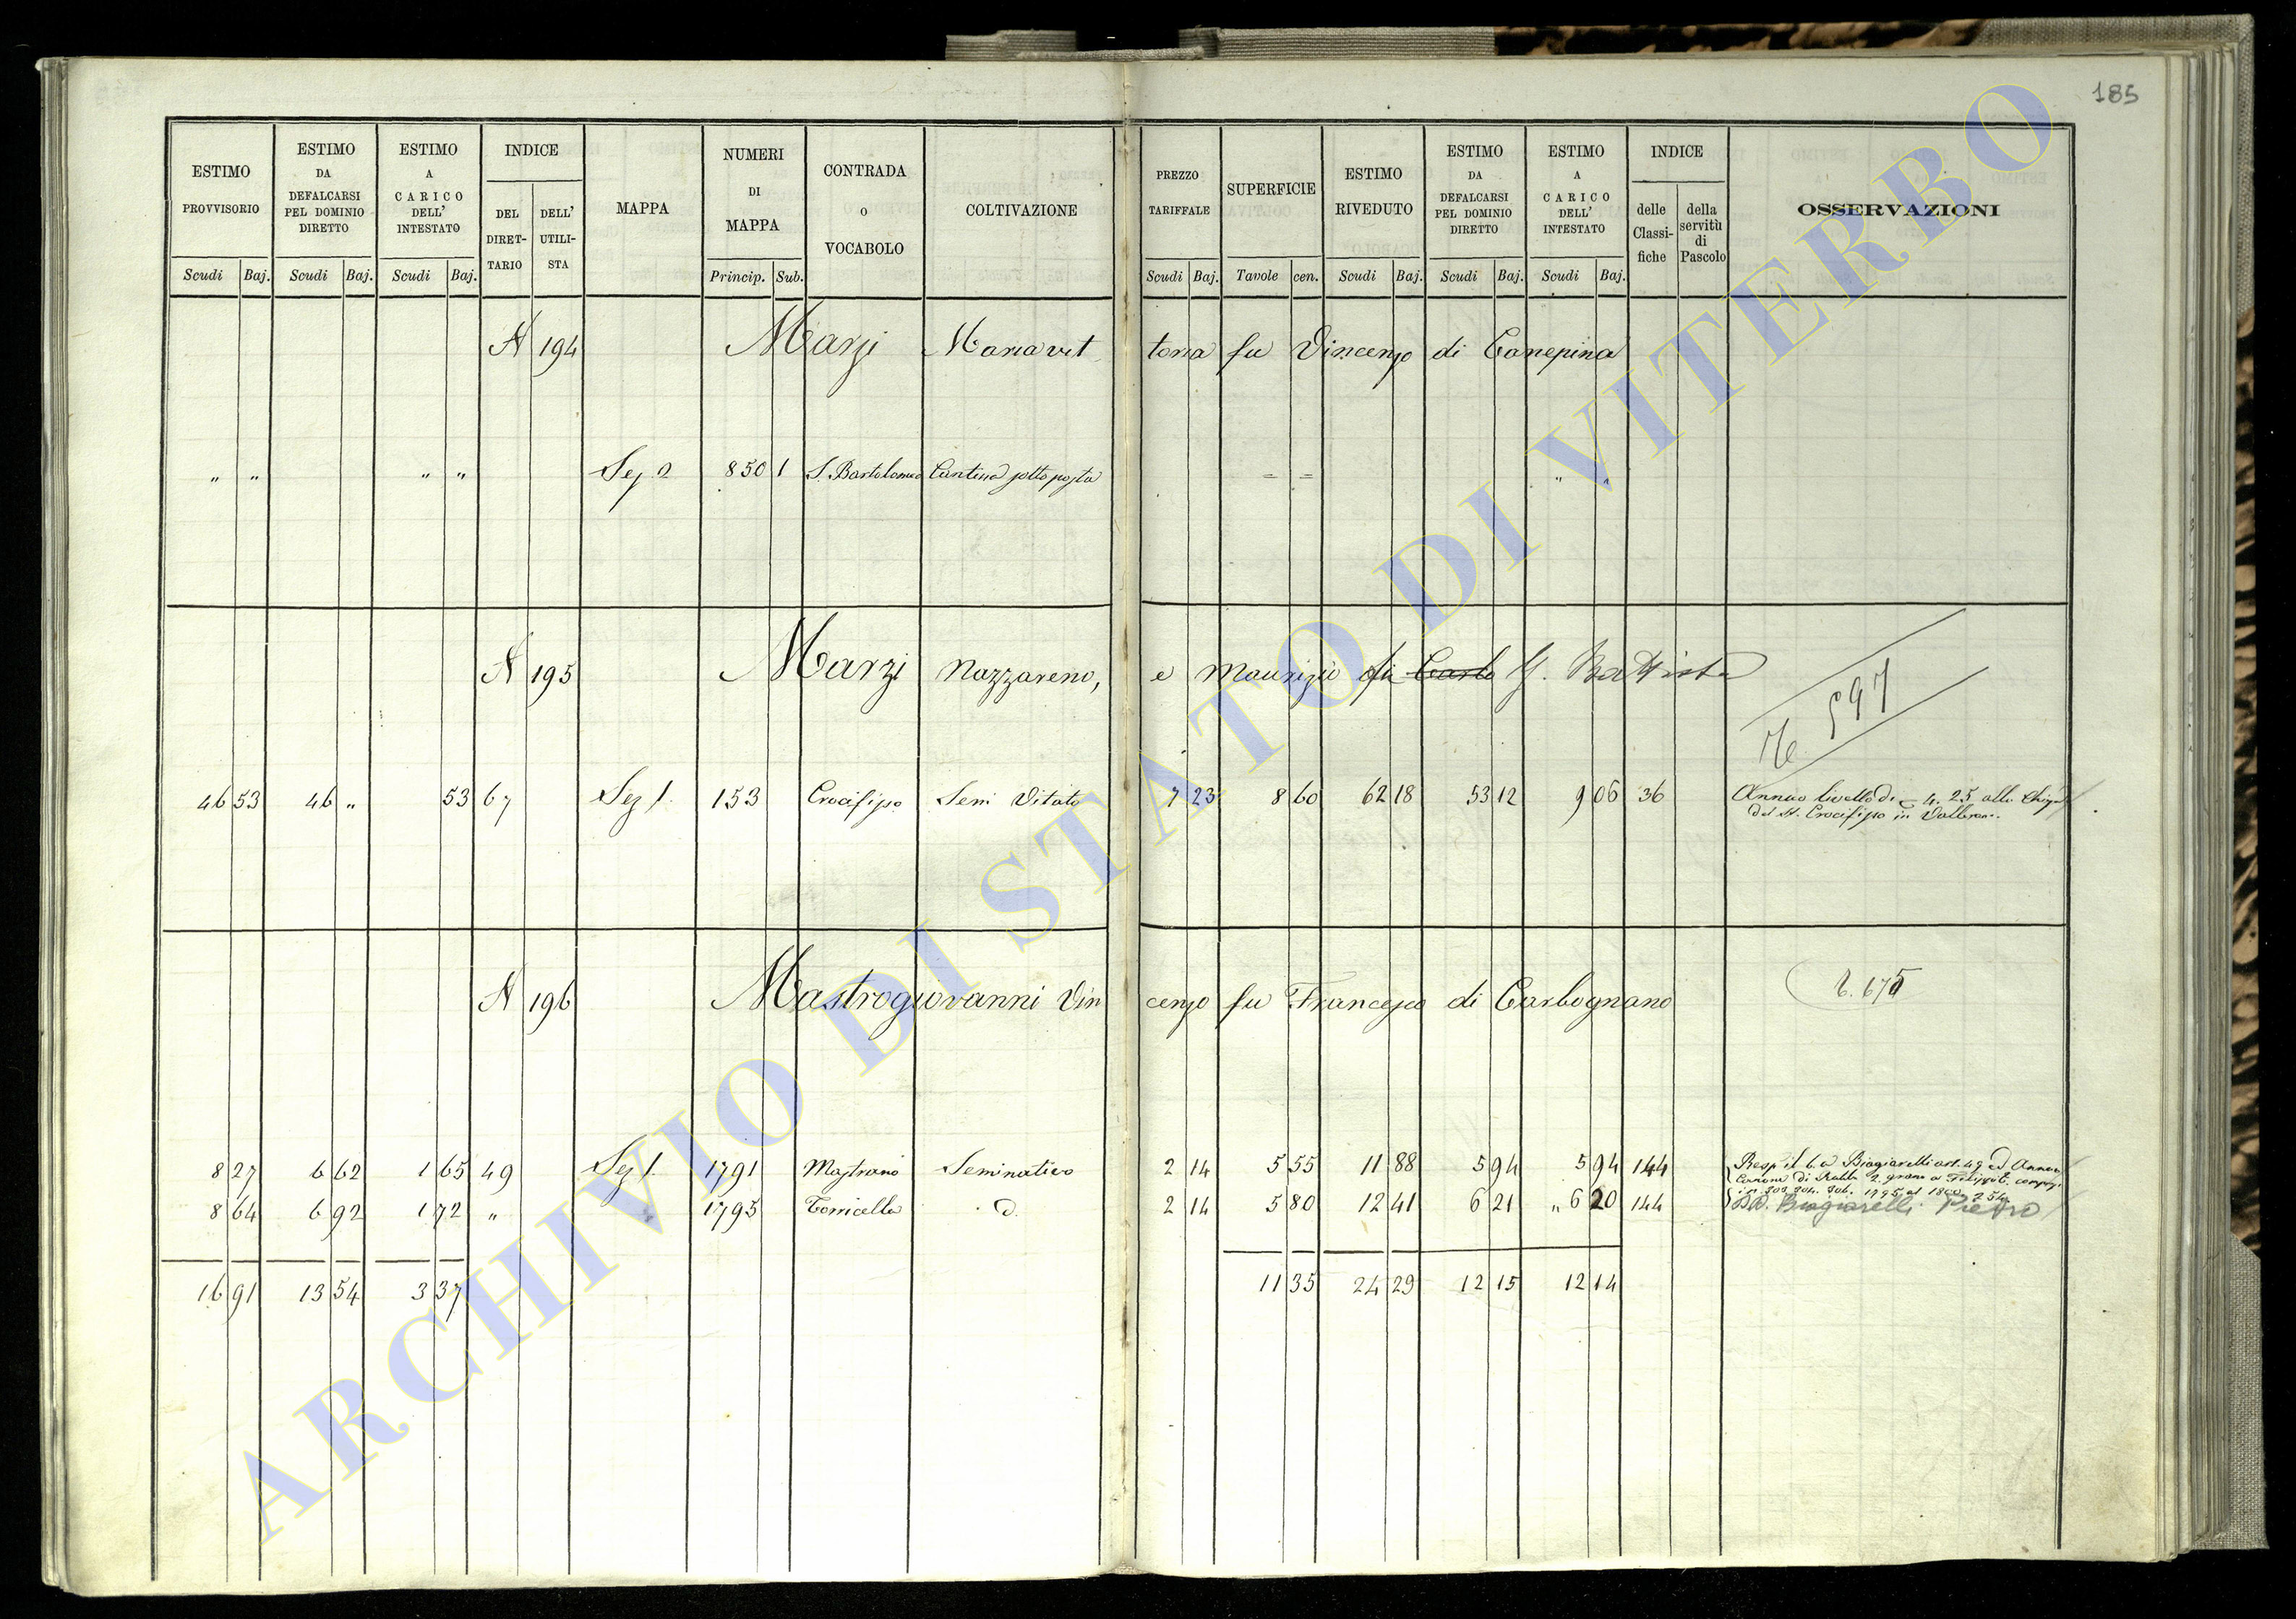 185
ESTIMO PROVVISORIO | ESTIMO DA DEFALCARSI PEL DOMINIO DIRETTO | ESTIMO A CARICO DELL' INTESTATO | INDICE | MAPPA | NUMERI DI MAPPA | CONTRADA O VOCABOLO | COLTIVAZIONE | PREZZO TARIFFALE | SUPERFICIE | ESTIMO RIVEDUTO | ESTIMO DA DEFALCARSI PEL DOMINIO DIRETTO | ESTIMO A CARICO DELL' INTESTATO | INDICE | OSSERVAZIONI
DEL DIRETTARIO | DELL' UTILISTA | delle Classifiche | della servitù di Pascolo
Scudi | Baj. | Scudi | Baj. | Scudi | Baj. | Princip. | Sub. | Scudi | Baj. | Tavole | cen. | Scudi | Baj. | Scudi | Baj. | Scudi | Baj.
N 194 Marzi Mariavittoria fu Vincenzo di Canepina
" " | " " | Sez 2 | 850 | 1 | S. Bartolomeo | Cantina sottoposta | = = | " "
N 195 Marzi Nazzareno, e Maurizio di Carlo G. Battista
597
46 53 | 46 " | 53 | 67 | Sez 1. | 153 | Crocifisso | Semi Vitato | 7 23 | 8 60 | 62 18 | 53 12 | 9 06 | 36 | Annuo livello di 4. 25 alla Chiesa
del SS. Crocifisso in
N 196 Mastrogiovanni Vincenzo fu Francesco di Carbognano
675
8 27 | 6 62 | 1 65 | 49 | Sez 1. | 1791 | Mastrano | Seminativo | 2 14 | 5 55 | 11 88 | 5 94 | 5 94 | 144 | Resp. il Biagiarelli art. 49 ed Annuo
Canone di 2. grano a
8 64 | 6 92 | 1 72 | " | 1795 | Torricella | d. | 2 14 | 5 80 | 12 41 | 6 21 | " 6 20 | 144 | DD. Biagiarelli Pietro
16 91 | 13 54 | 3 37 | 11 35 | 24 29 | 12 15 | 12 14
ARCHIVIO DI STATO DI VITERBO